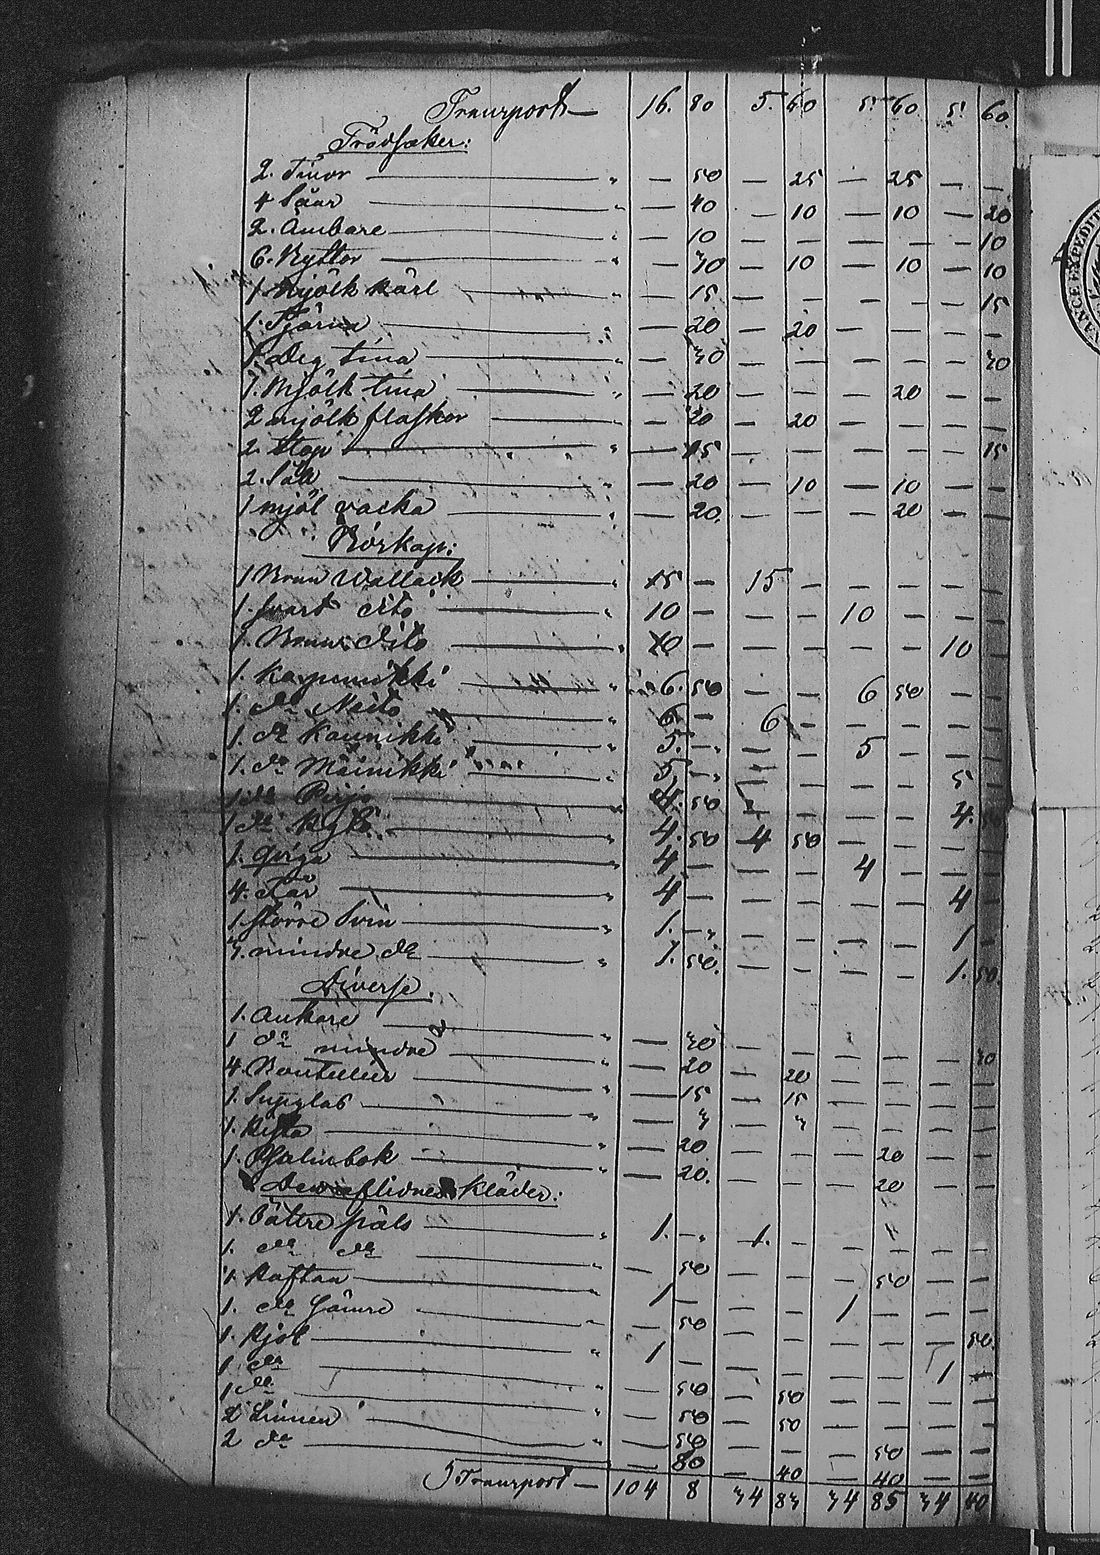 Transport — 16. 80 5. 60 5. 60 5. 60
Trädsaker:
2. Tinor — " — 50 — 25 — 25 — —
4 Såar — " — 40 — 10 — 10 — 20
2. Ämbare — " — 10 — — — — — 10
6. Byttor — " — 30 — 10 — 10 — 10
1 Mjölk kärl — " — 15 — — — — — 15
1. Tjärna — " — 20 — 20 — — — —
1 Deg tina — " — 30 — — — — — 30
1. Mjölk tina — " — 20 — — — 20 — —
2 mjölk flaskor — " — 20 — 20 — — — —
2. Stop — " — 15 — — — — — 15
2. Såll — " — 20 — 10 — 10 — —
1 mjöl vacka — " — 20. — — — 20 — —
Börskap:
1 Brun Wallack — " 15 — 15 — — — — —
1. svart dito — " 10 — — — 10 — — —
1. Brun dito — " 10 — — — — — 10 —
1. Ko — " 6. 50 — — 6 50 — —
1. do — " 6 — 6 — — — — —
1. do Kaunikki — " 5. — — — 5 — — —
1. do Mainikki — " 5. — — — — — 5 —
1 do — " 4. 50 — — — — 4. 50
1 do Kytö — " 4. 50 4 50 — — — —
1. Qviga — " 4 — — — 4 — — —
4. Får — " 4 — — — — — 4 —
1. större Svin — " 1. — — — — — 1 —
3. mindre do — " 1. 50. — — — — 1. 50.
Diverse.
1. Ankare — " — 30 — — — — — 30
1 do mindre — " — 20 — 20 — — — —
4 Bouteller — " — 15 — 15 — — — —
1. Supglas — " — 3 — 3 — — — —
1. Kista — " — 20 — — — 20 — —
1. Psalmbok — " — 20. — — — 20 — —
Den aflidnes Kläder:
1. Bättre päls — " 1. — 1. — — — — —
1. do do — — 50 — — — 50 — —
1. Kaftan — " 1 — — — 1 — — —
1. do Sämre — — 50 — — — — — 50.
1. Kjol — " 1 — — — — — 1 —
1 do — — 50 — 50 — — — —
1 do — " — 50 — 50 — — — —
2 Linnen — " — 50 — — — 50 — —
2 do — — 80 — 40 — 40 — —
Transport — 104 8 34 83 34 85 34 40